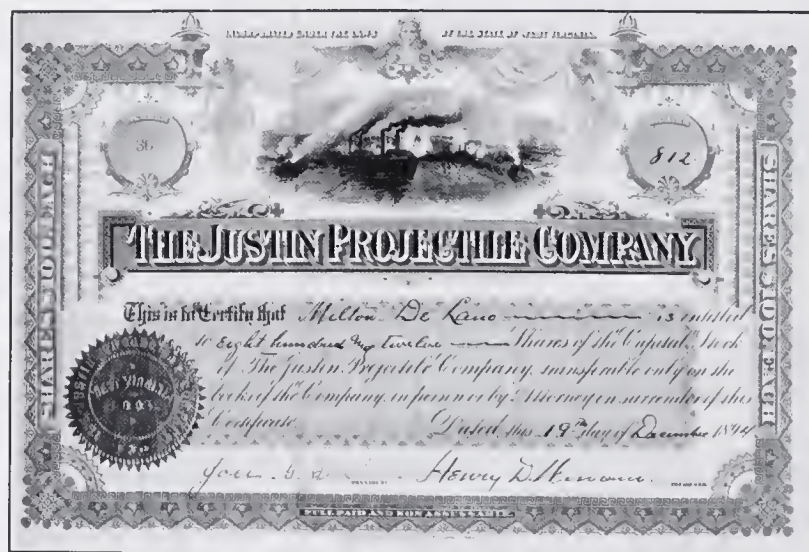 INCORPORATED UNDER THE LAWS OF THE STATE OF WEST VIRGINIA.
36
812
THE JUSTIN PROJECTILE COMPANY
SHARES $100. EACH
SHARES $100. EACH
This is to Certify that Milton De Lano is entitled
to Eight hundred and twelve Shares of the Capital Stock
of The Justin Projectile Company, transferable only on the
books of the Company, in person or by Attorney on surrender of this
Certificate. Dated this 19th day of December 1894
Henry D.
FULL PAID AND NON ASSESSABLE.